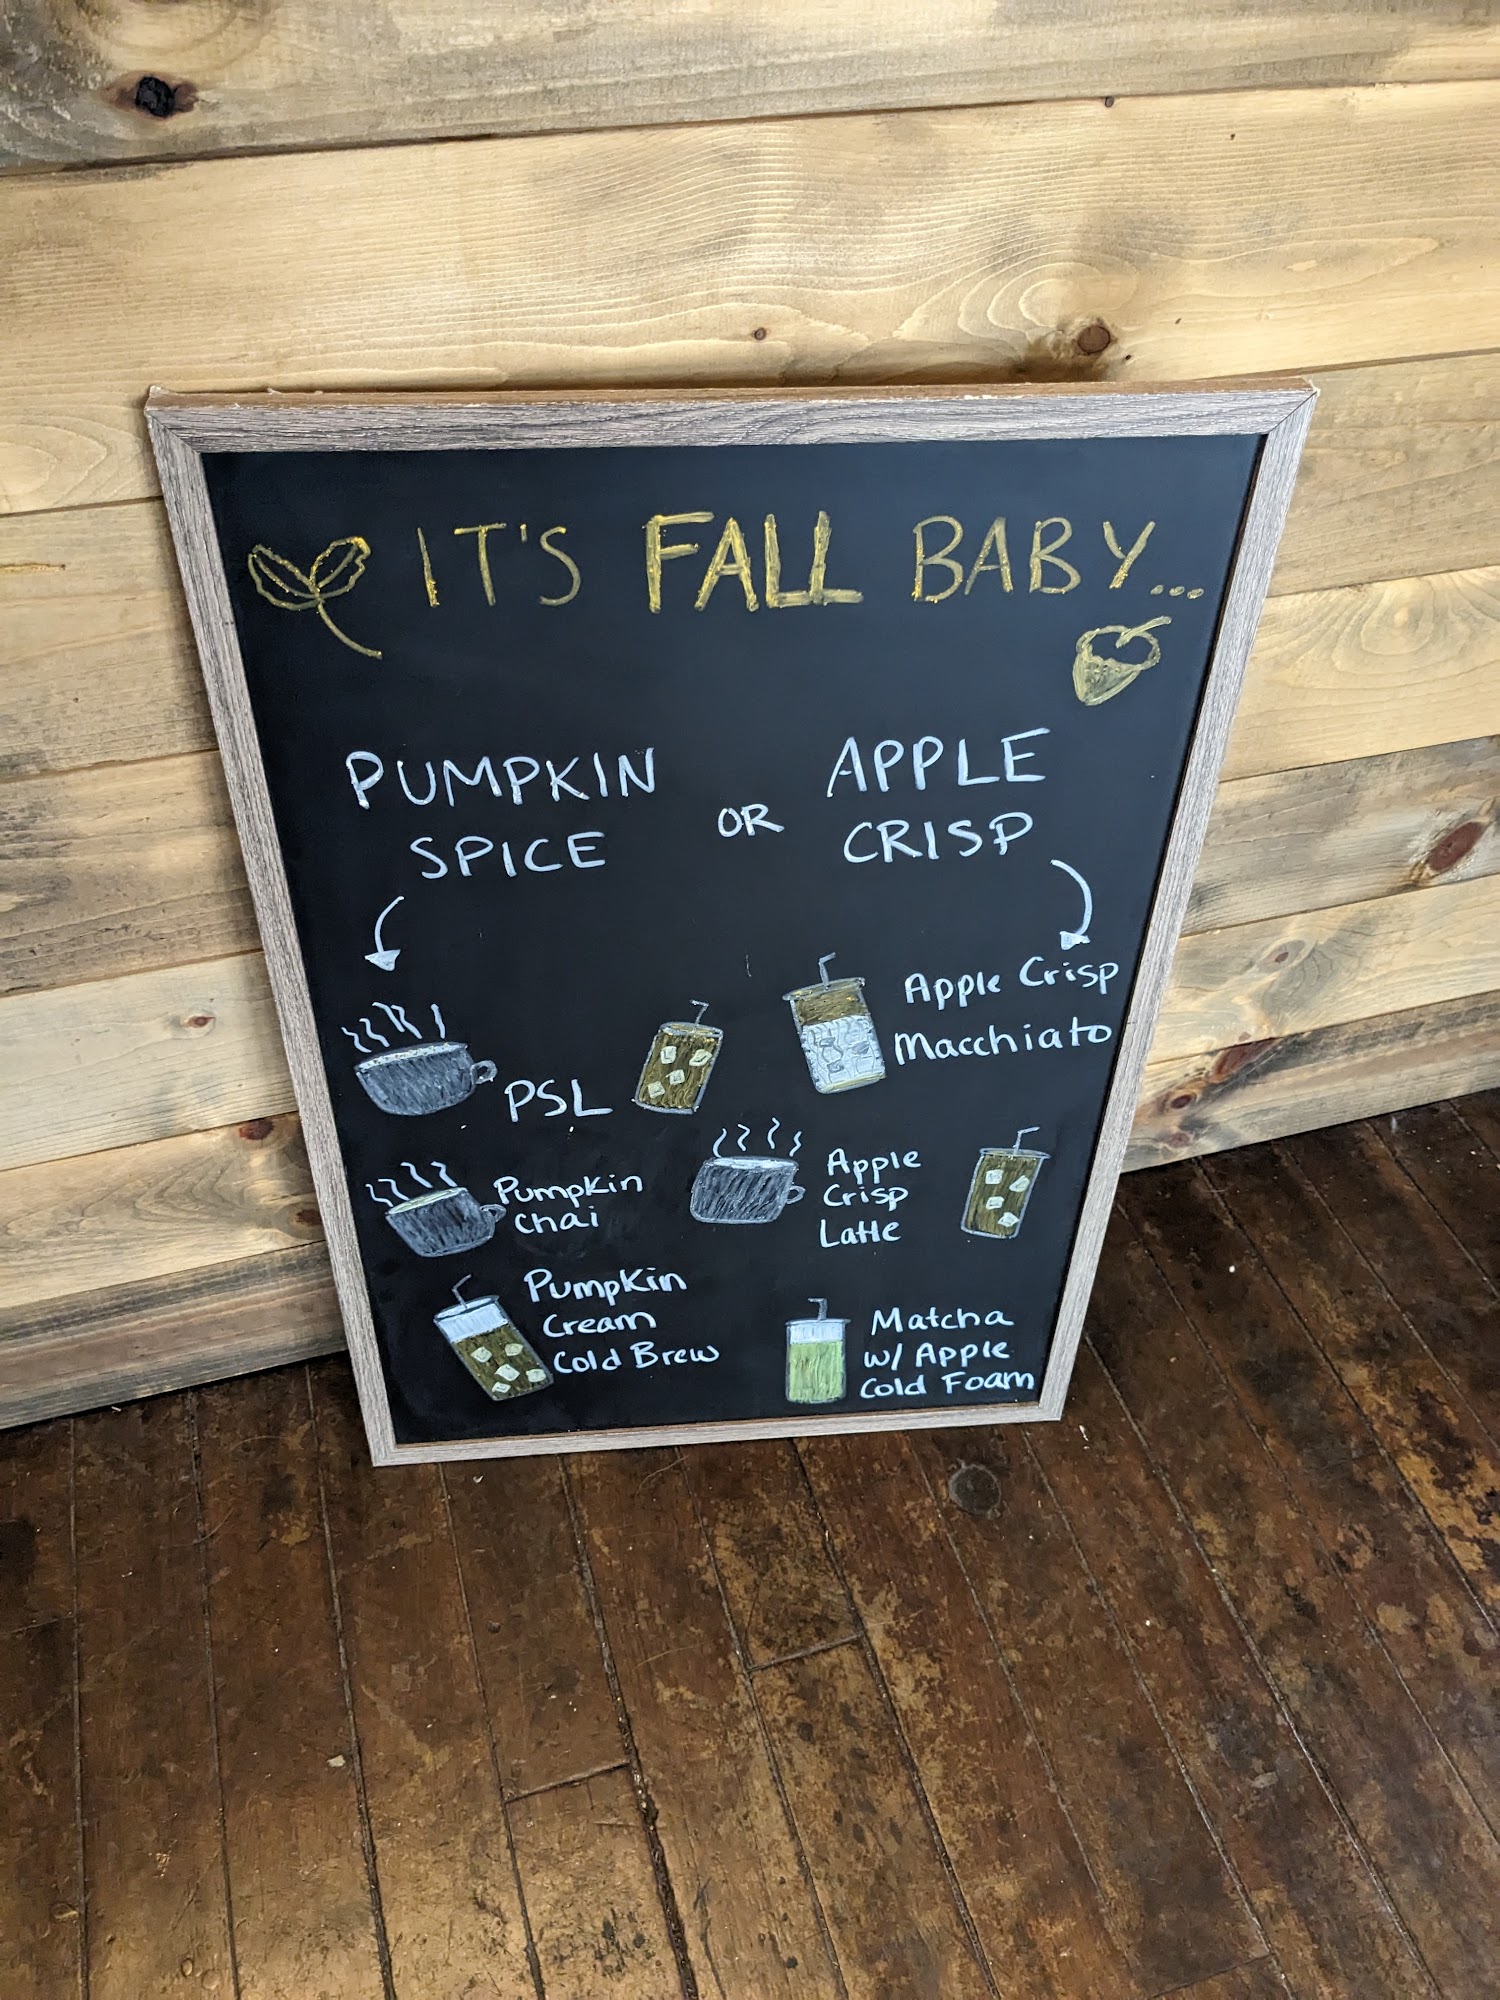 IT'S FALL BABY...
PUMPKIN
SPICE
OR
APPLE
CRISP
PSL
Pumpkin
Chai
Pumpkin
Cream
Cold Brew
Apple Crisp
Macchiato
Apple
Crisp
Latte
Matcha
w/ Apple
Cold Foam